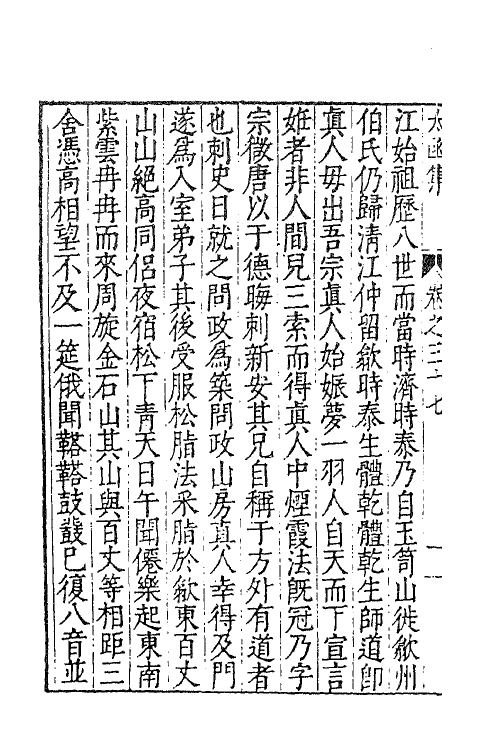 太函集 卷之三十七 一
江始祖歷八世而當時濟時泰乃自玉笥山徙歙州
伯氏仍歸清江仲留歙時泰生體乾體乾生師道卽
眞人母出吾宗眞人始娠夢一羽人自天而下宣言
姙者非人間兒三索而得眞人中煙霞法旣冠乃字
宗徵唐以于德晦刺新安其兄自稱于方外有道者
也刺史日就之問政爲築問政山房真人幸得及門
遂爲入室弟子其後受服松脂法采脂於歙東百丈
山山絕高同侶夜宿松下靑天日午聞僊樂起東南
紫雲冉冉而來周旋金石山其山與百丈等相距三
舍憑高相望不及一筵俄聞鞳鞳鼓鼗已復八音並